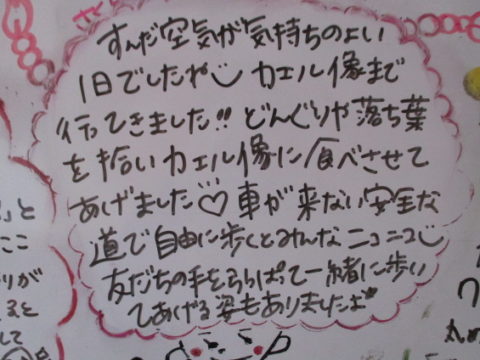 すんだ空気が気持ちのよい
1日でしたね カエル像まで
行ってきました!! どんぐりや落ち葉
を拾いカエル像に食べさせて
あげました♡車が来ない安全な
道で自由に歩くとみんなニコニコで
友だちの手をひっぱって一緒に歩い
てあげる姿もありましたよ